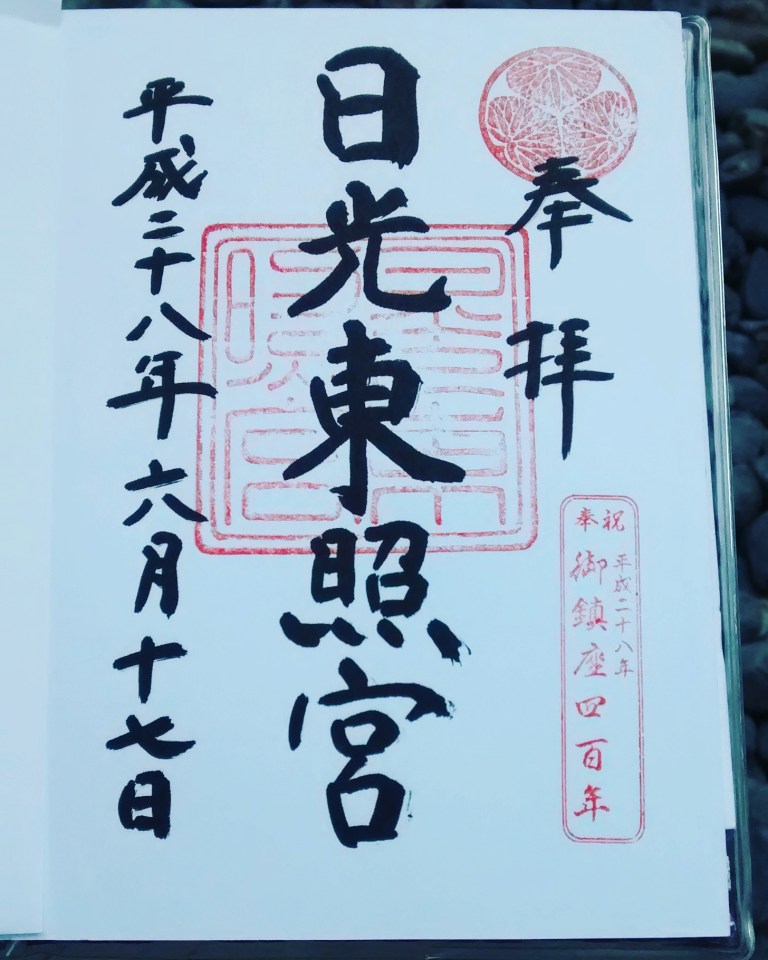 奉拝
奉祝
平成二十八年
御鎮座四百年
日光東照宮
平成二十八年六月十七日